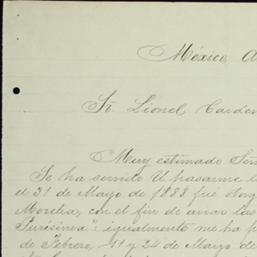 México, A
Sr. Lionel Carden
Muy estimado Señ
Se ha servido U. pasarme l
el 31 de Mayo de 1888 fué otorg
Morelia, con el fin de
Purísima": igualmente me ha p
de Febrero, 11 y 24 de Marzo de